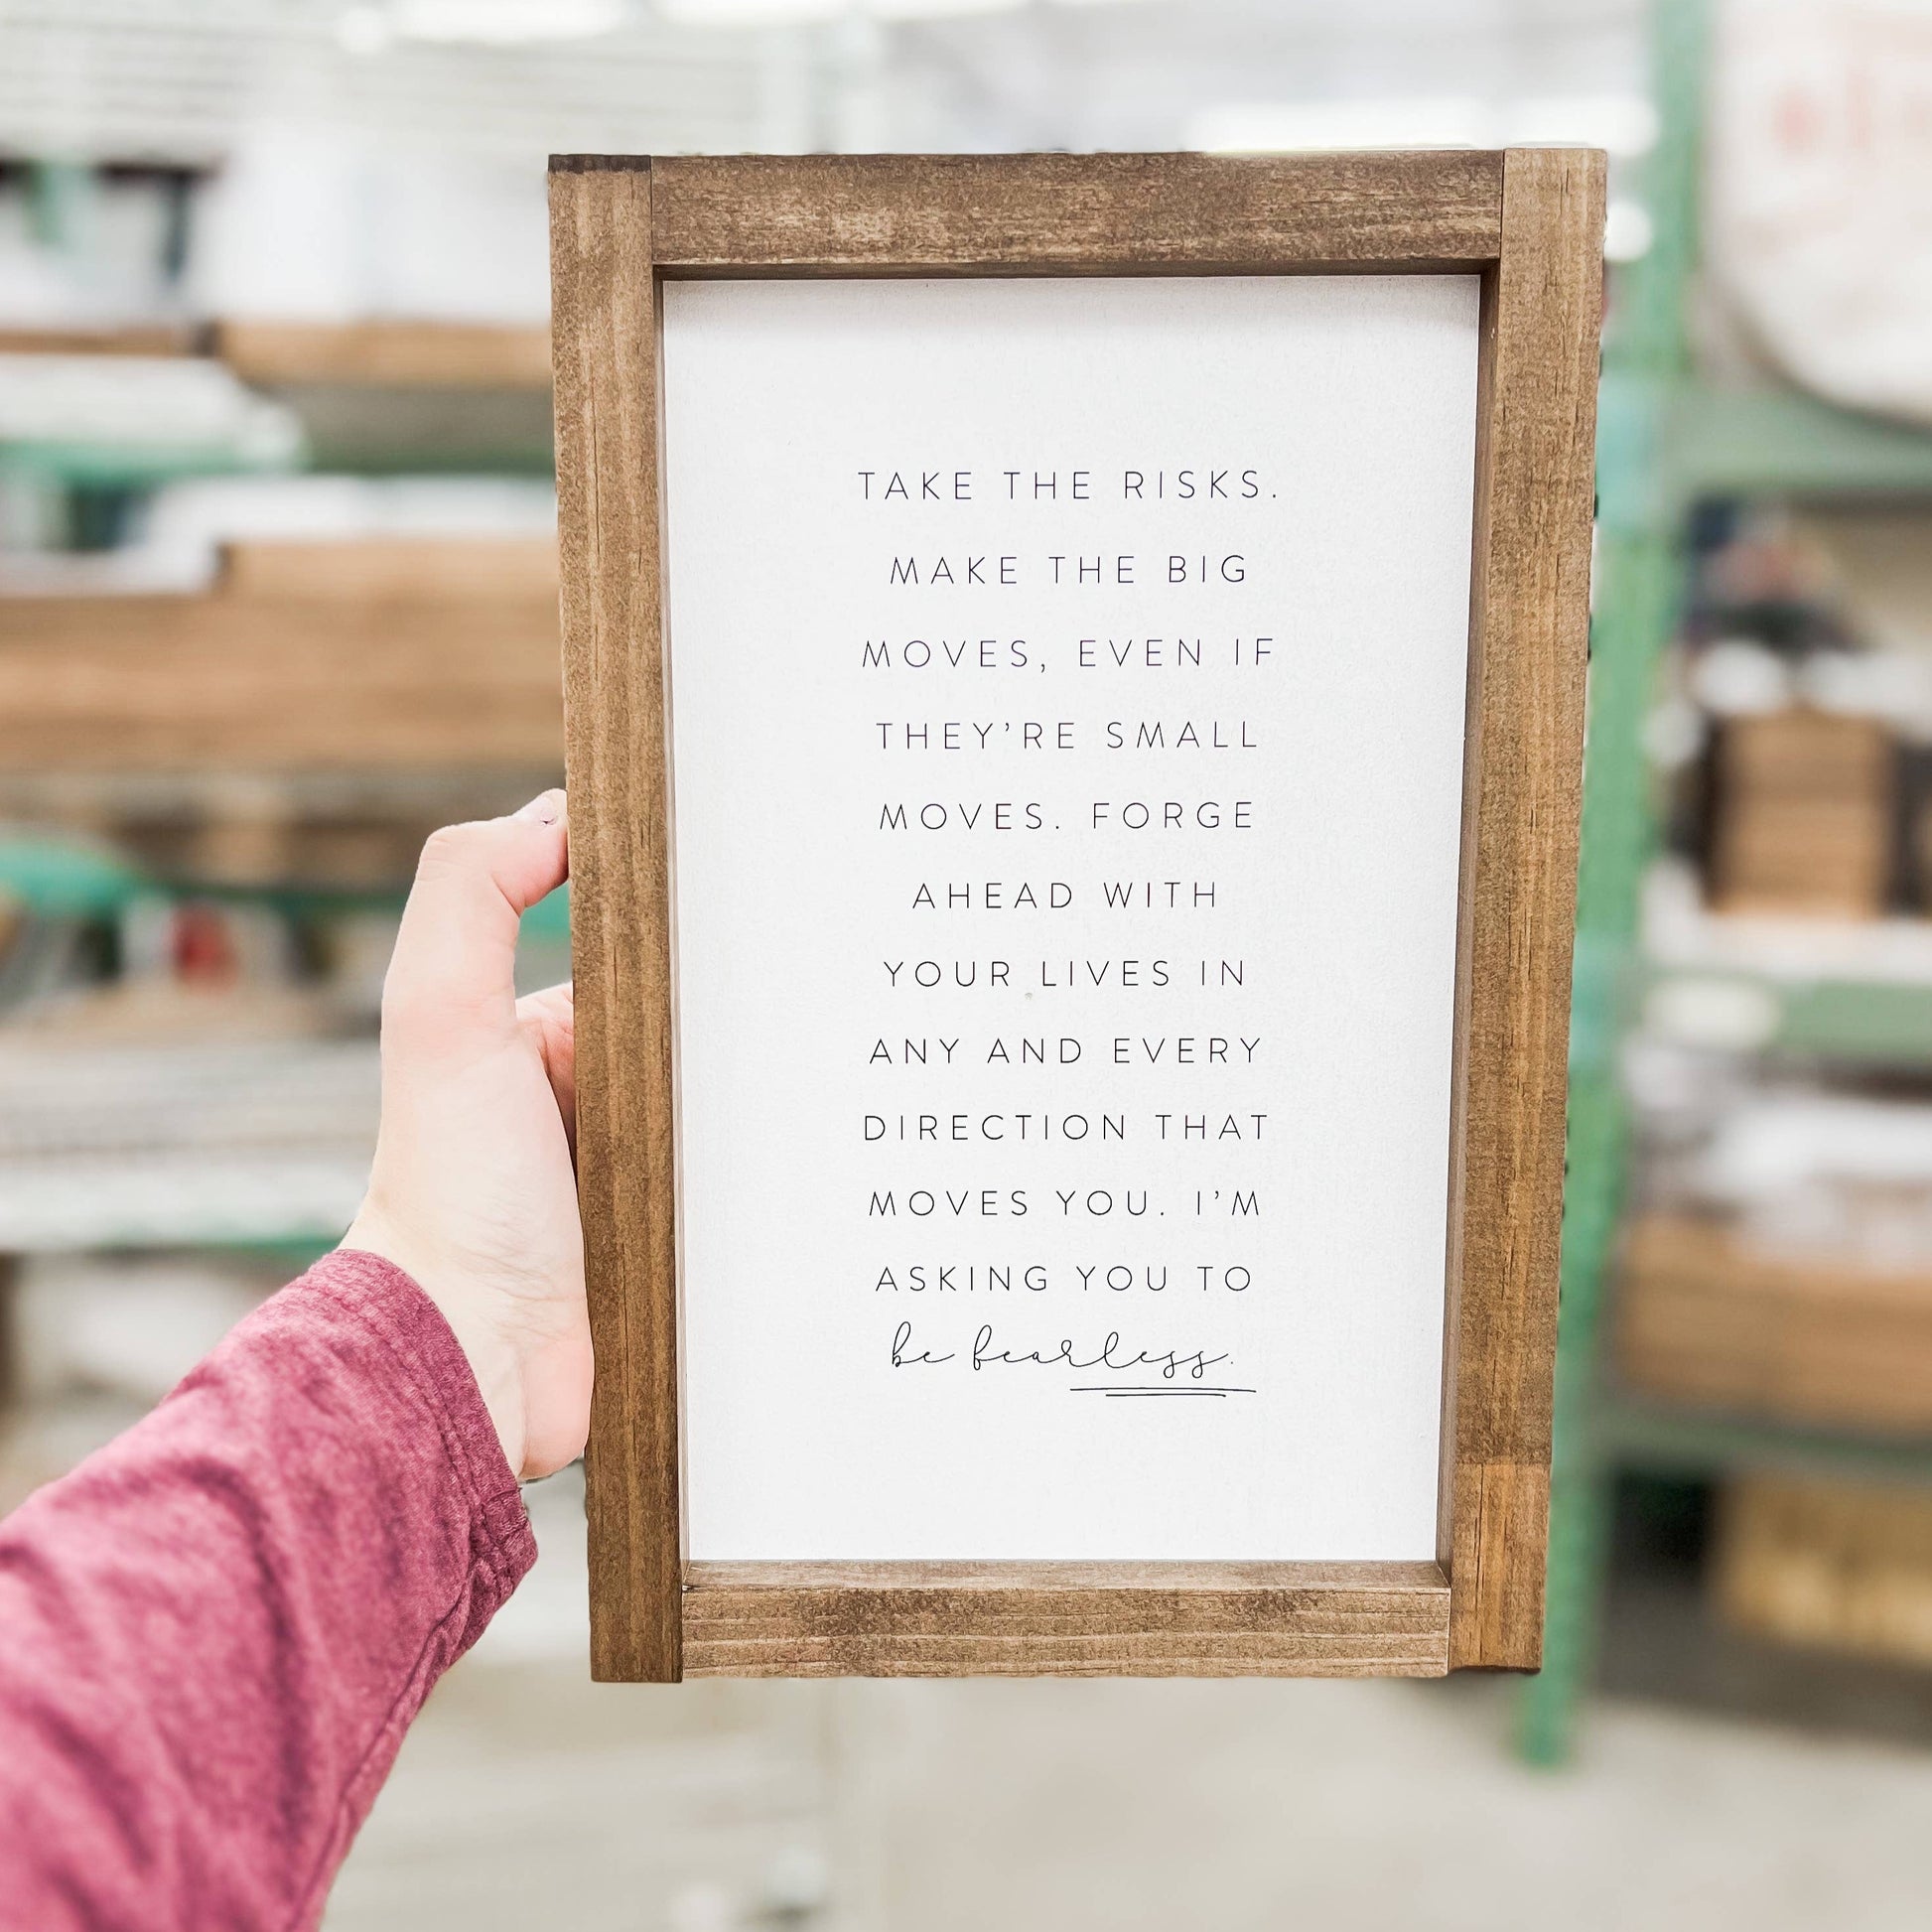 TAKE THE RISKS.
MAKE THE BIG
MOVES, EVEN IF
THEY’RE SMALL
MOVES. FORGE
AHEAD WITH
YOUR LIVES IN
ANY AND EVERY
DIRECTION THAT
MOVES YOU. I’M
ASKING YOU TO
be fearless.